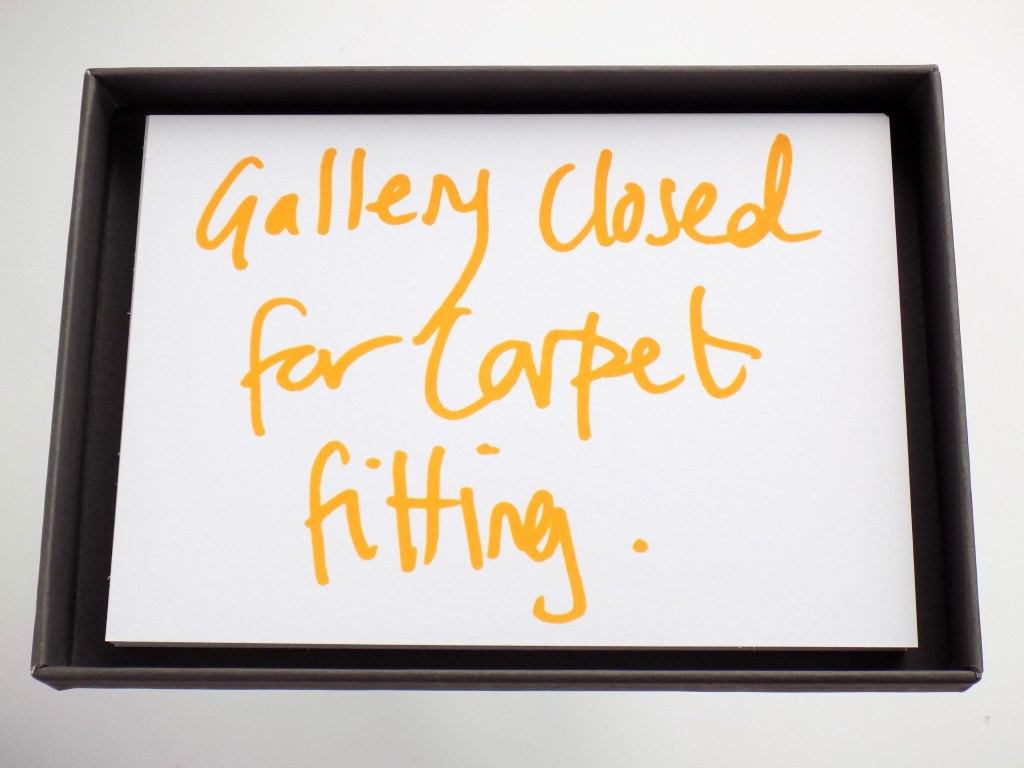 Gallery Closed
for Carpet
fitting.